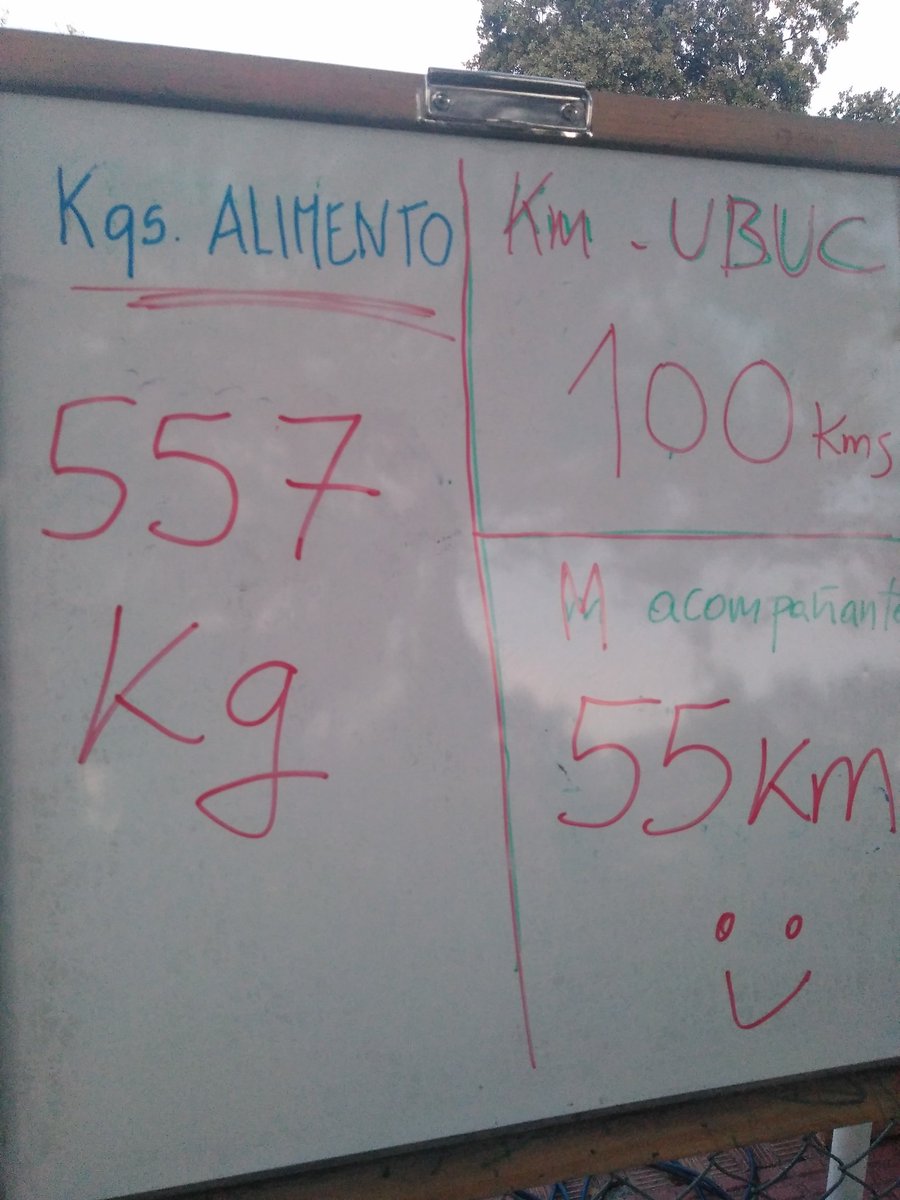 Kgs. ALIMENTO
557
Kg
Km - UBUC
100 Kms
M acompañant
55 Km